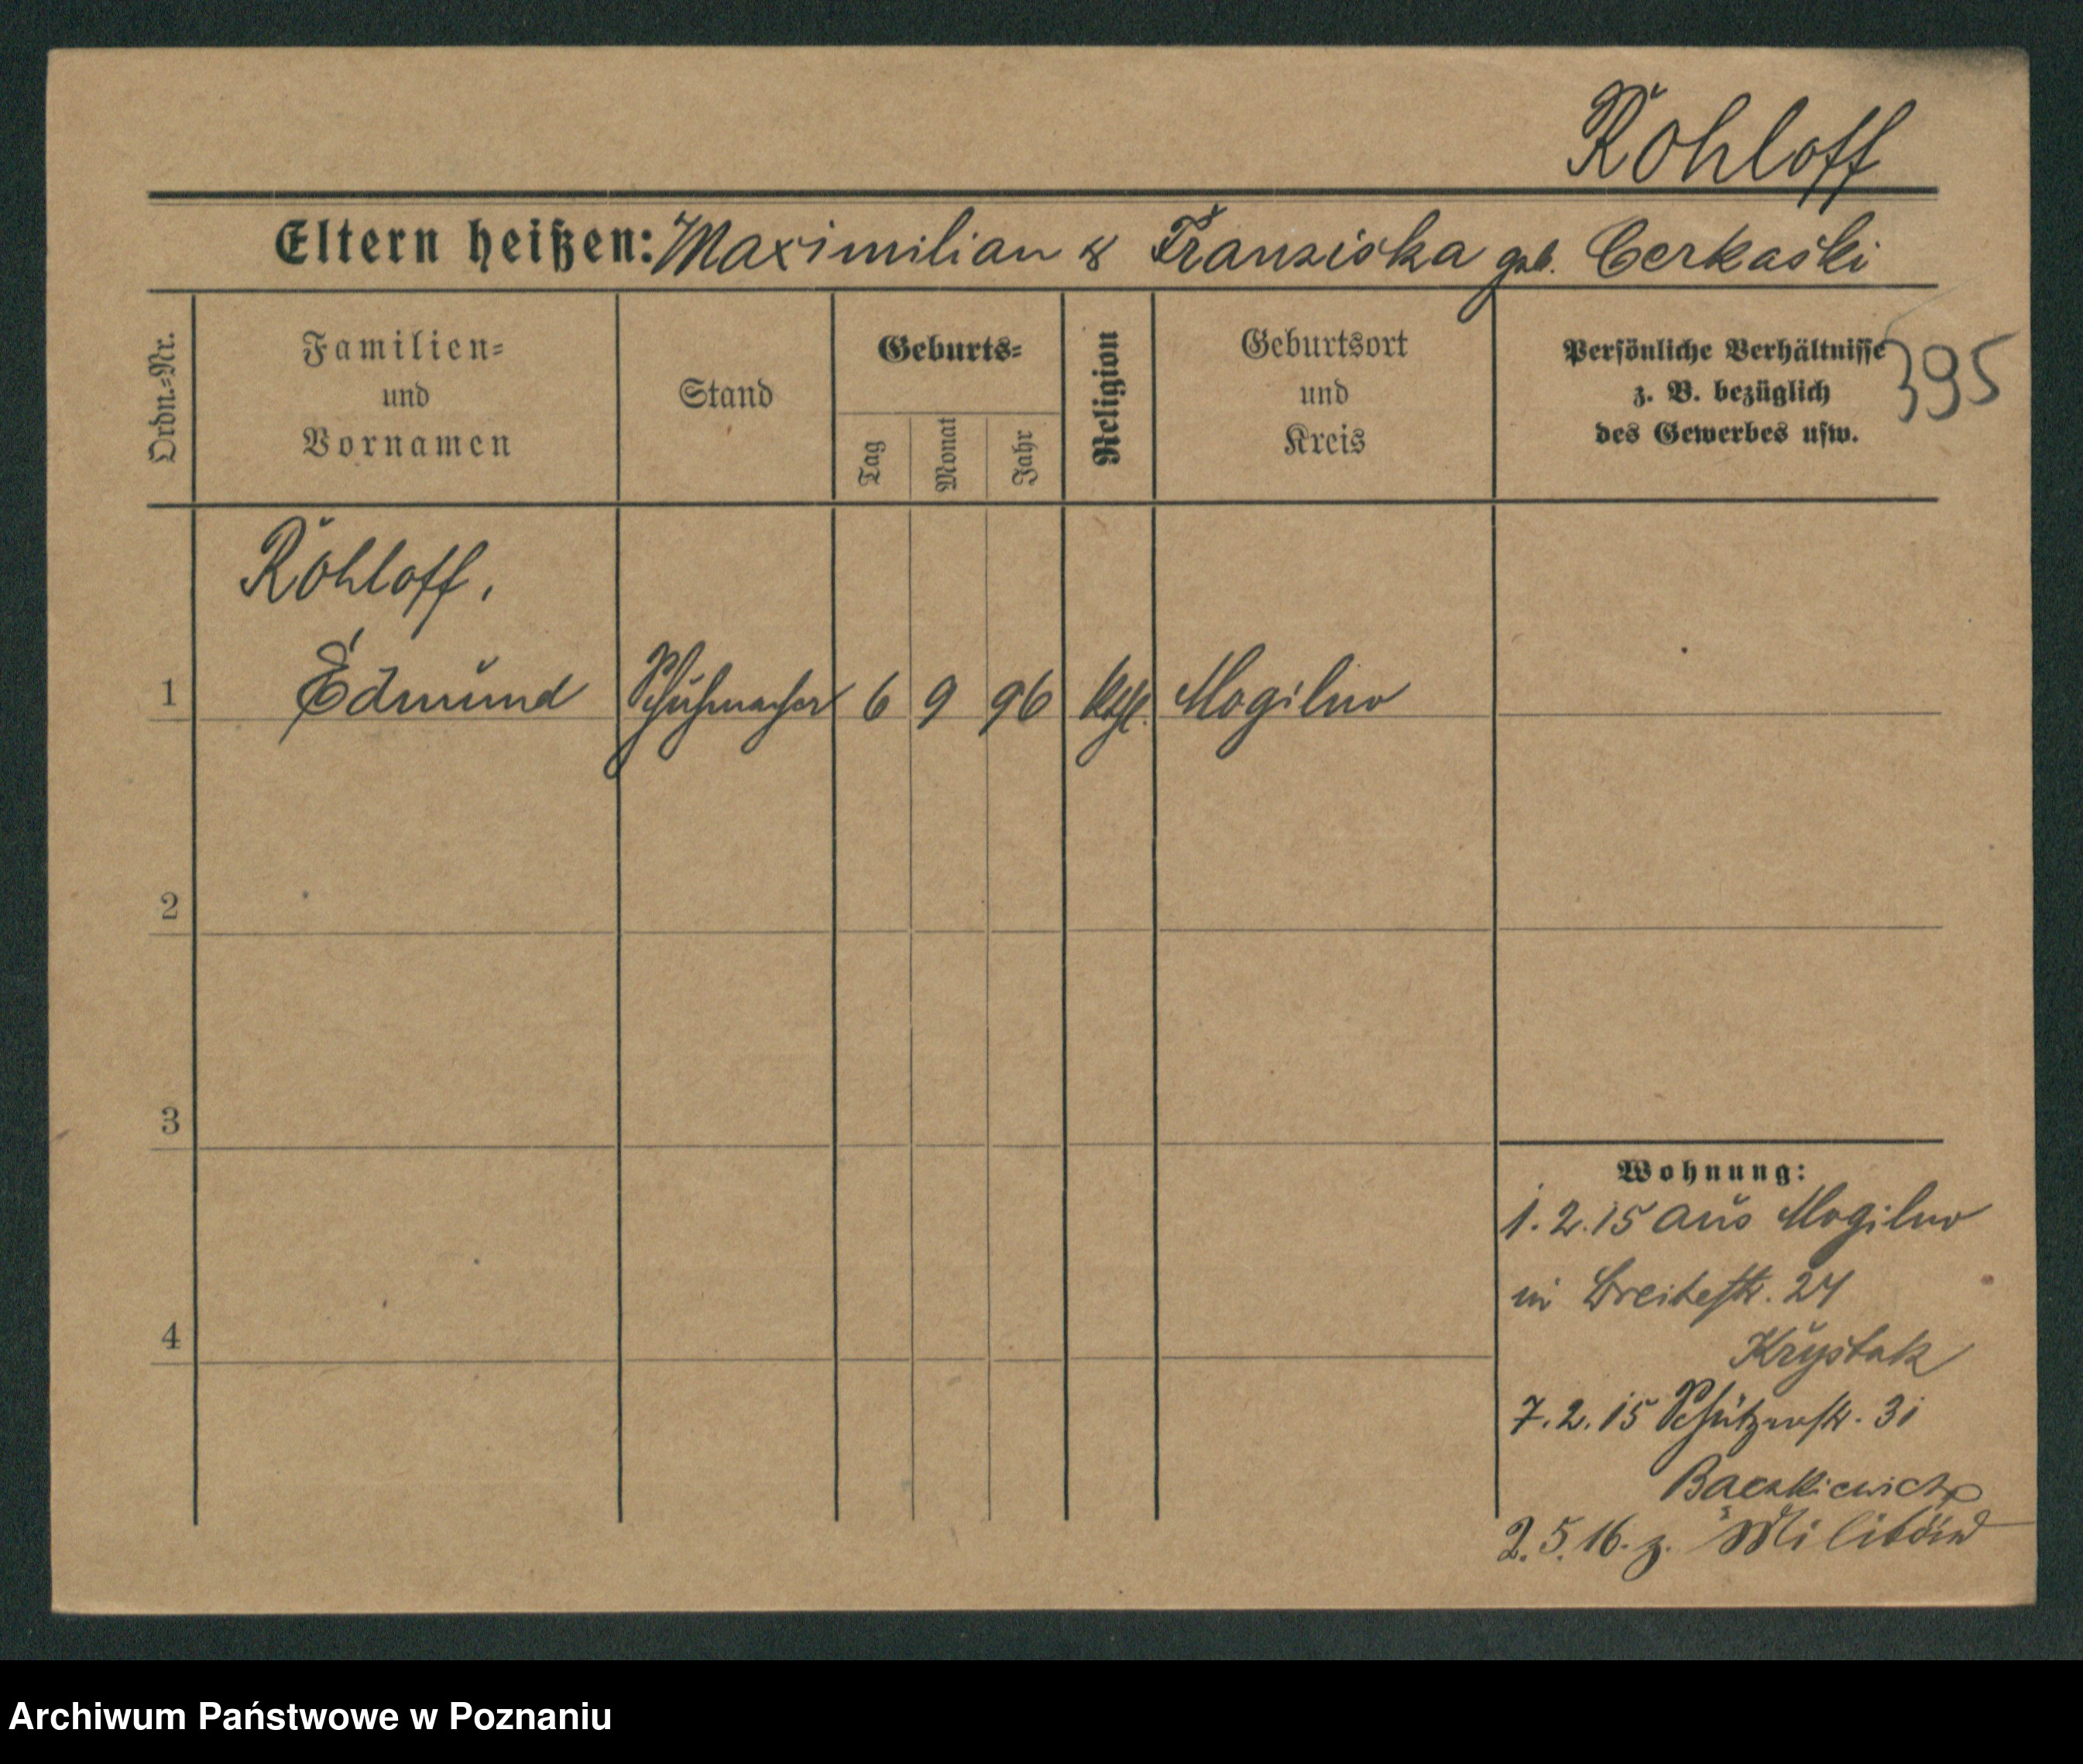 Rohloff
Eltern heißen: Maximilian & Franziska geb. Cerkaski
395
Ordn.-Nr.
Familien-
und
Vornamen
Stand
Geburts-
Tag
Monat
Jahr
Religion
Geburtsort
und
Kreis
Persönliche Verhältnisse
z. B. bezüglich
des Gewerbes usw.
Rohloff,
1 Edmund Schuhmacher 6 9 96 kath. Mogilno
2
3
4
Wohnung:
1.2.15 aus Mogilno
in Breitestr. 24
Krystak
7.2.15 Schützenstr. 31
2.5.16. z. Militär
Archiwum Państwowe w Poznaniu